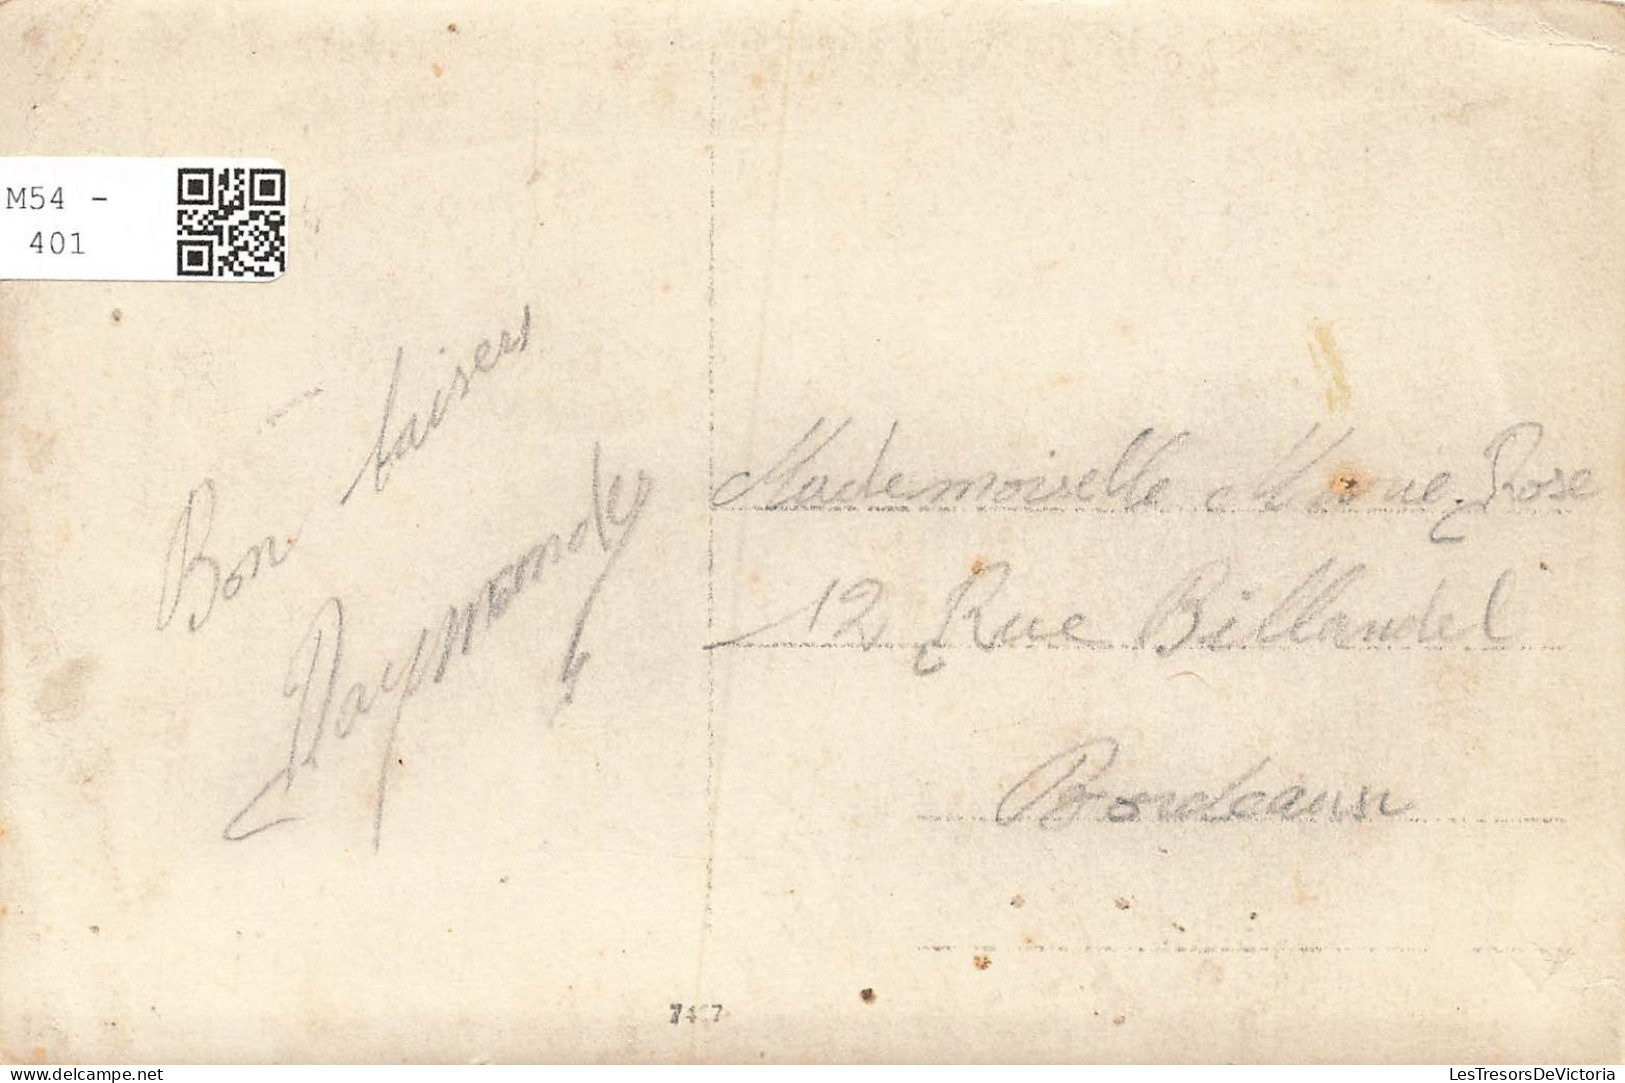 M54 -
401
Bon baisers
Raymonde
Mademoiselle Marie Rose
12 Rue Billaudel
Bordeaux
delcampe.net
LesTresorsDeVictoria